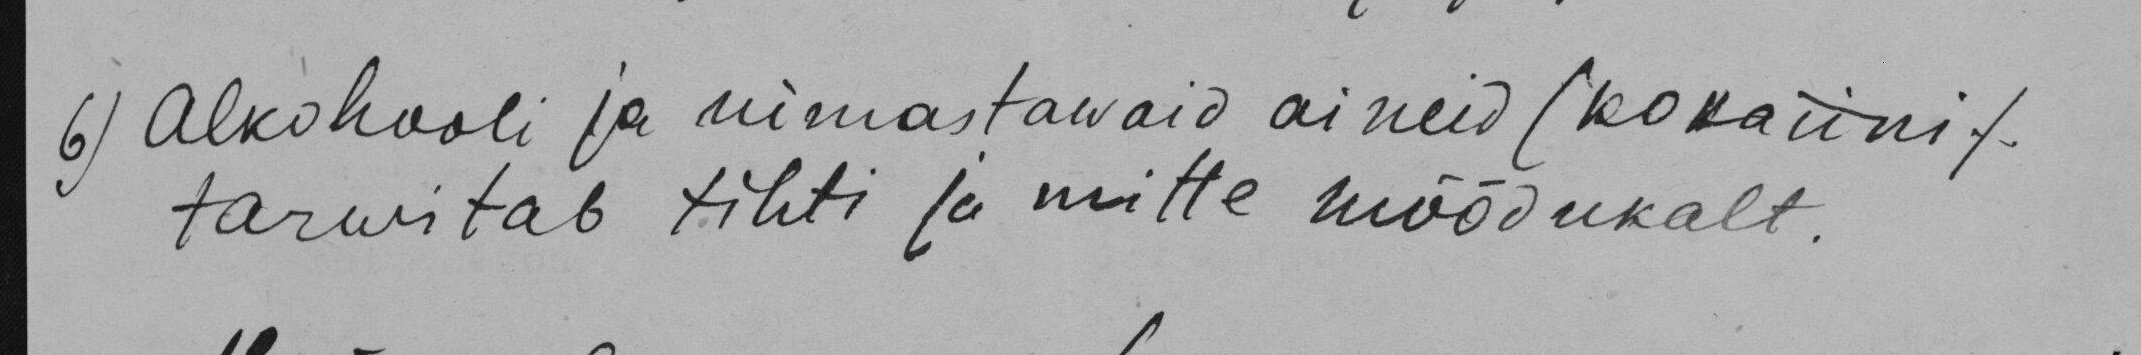 6) Alkohooli ja uimastawaid aineid (kokaiini)-
tarwitab tihti ja mitte mõõdukalt.